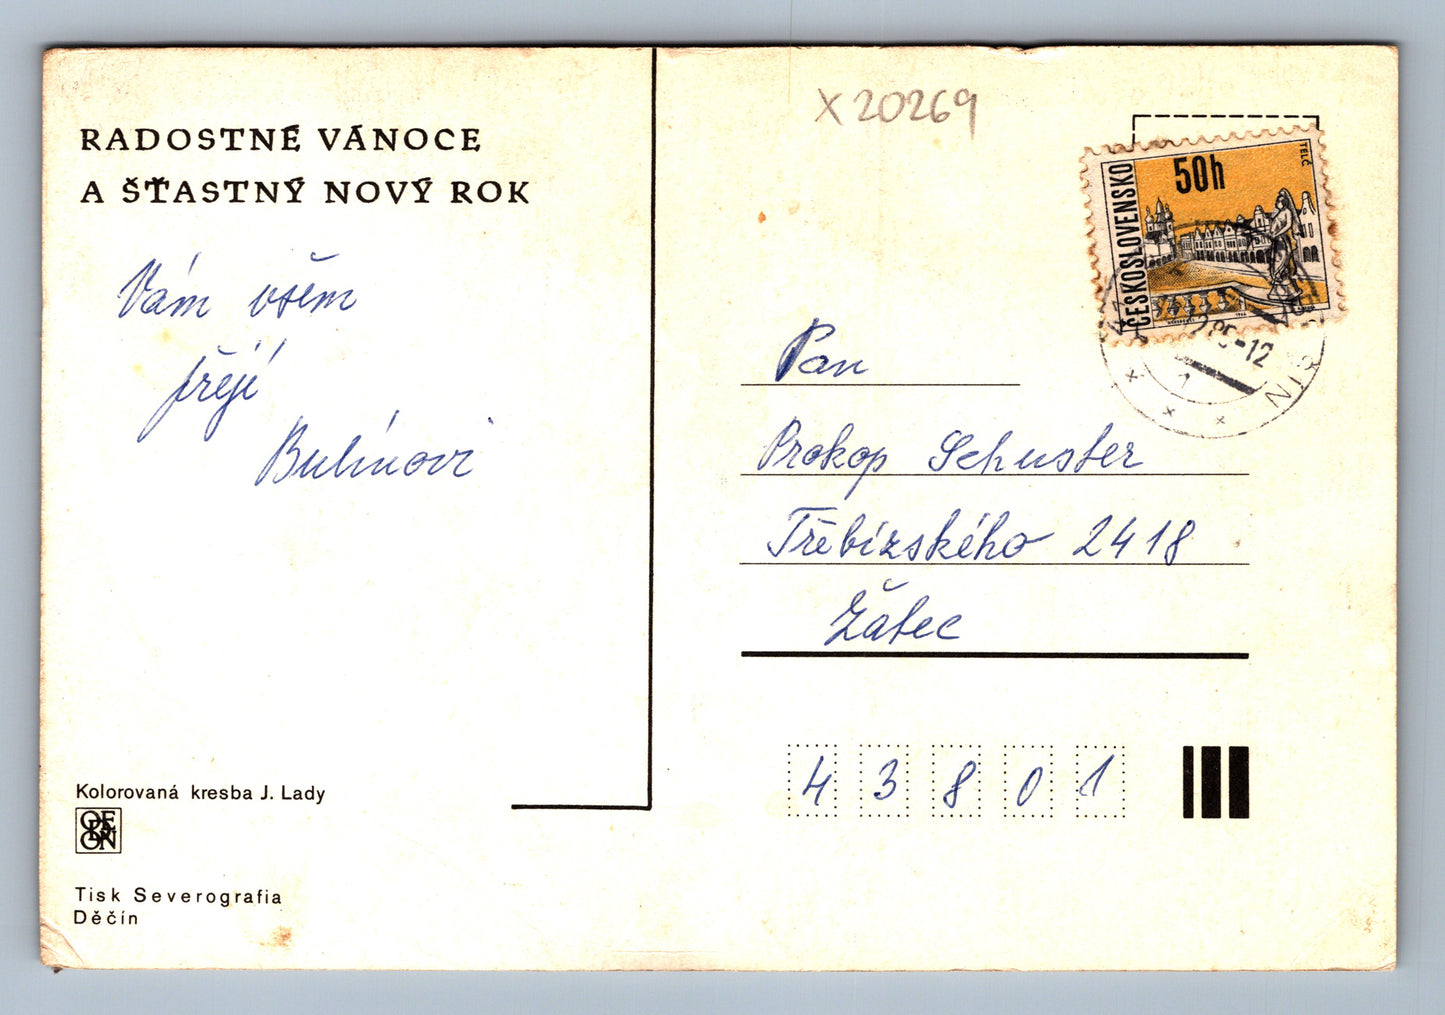 RADOSTNÉ VÁNOCE
A ŠŤASTNÝ NOVÝ ROK
Vám všem
přejí
Bulínovi
Kolorovaná kresba J. Lady
ODEON
Tisk Severografia
Děčín
X 20269
ČESKOSLOVENSKO
50h
TELČ
-12
Pan
Prokop Schuster
Třebízského 2418
Žatec
43801